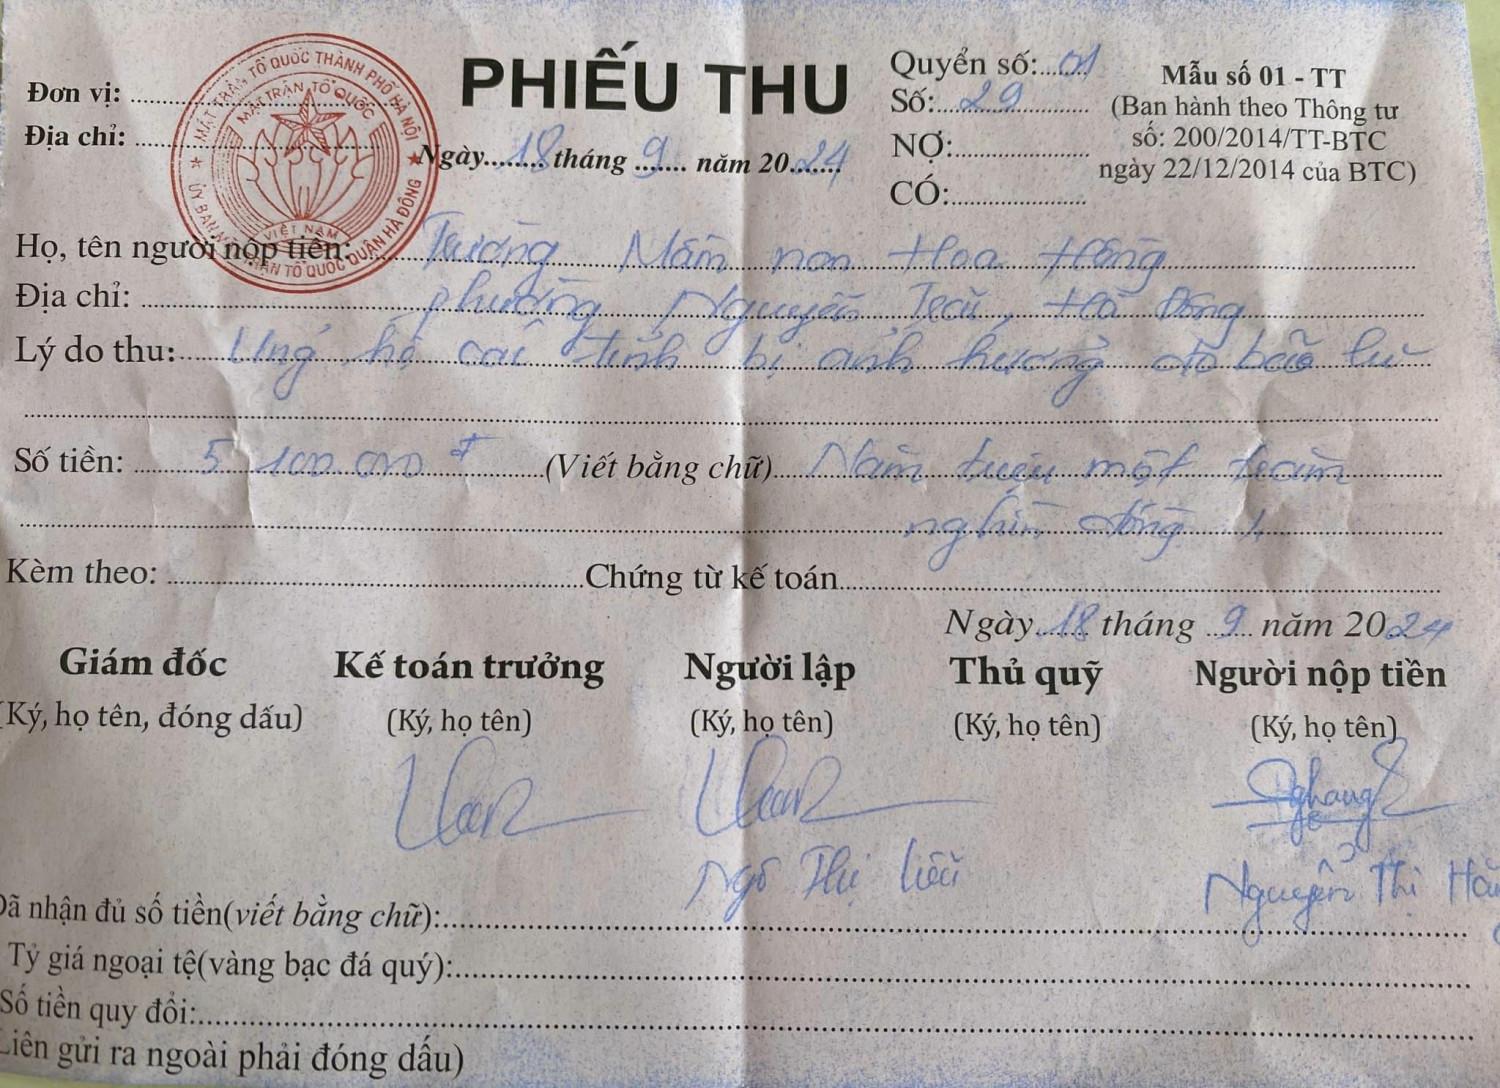 PHIẾU THU
Đơn vị:
Địa chỉ:
MẶT TRẬN TỔ QUỐC THÀNH PHỐ HÀ NỘI
MẶT TRẬN TỔ QUỐC
VIỆT NAM
TRẬN TỔ QUỐC QUẬN HÀ ĐÔNG
Ngày 18 tháng 9 năm 2024
Quyển số: 01
Số: 29
NỢ:
CÓ:
Mẫu số 01 - TT
(Ban hành theo Thông tư
số: 200/2014/TT-BTC
ngày 22/12/2014 của BTC)
Họ, tên người nộp tiền: Trường Mầm non Hoa Hồng
Địa chỉ: phường Nguyễn Trãi, Hà Đông
Lý do thu: Ủng hộ các tỉnh bị ảnh hưởng do bão lũ
Số tiền: 5 100 000 đ (Viết bằng chữ) Năm triệu một trăm
nghìn đồng
Kèm theo: Chứng từ kế toán
Ngày 18 tháng 9 năm 2024
Giám đốc Kế toán trưởng Người lập Thủ quỹ Người nộp tiền
(Ký, họ tên, đóng dấu) (Ký, họ tên) (Ký, họ tên) (Ký, họ tên) (Ký, họ tên)
Ngô Thị Nguyễn Thị
Đã nhận đủ số tiền(viết bằng chữ):
Tỷ giá ngoại tệ(vàng bạc đá quý):
Số tiền quy đổi:
Liên gửi ra ngoài phải đóng dấu)